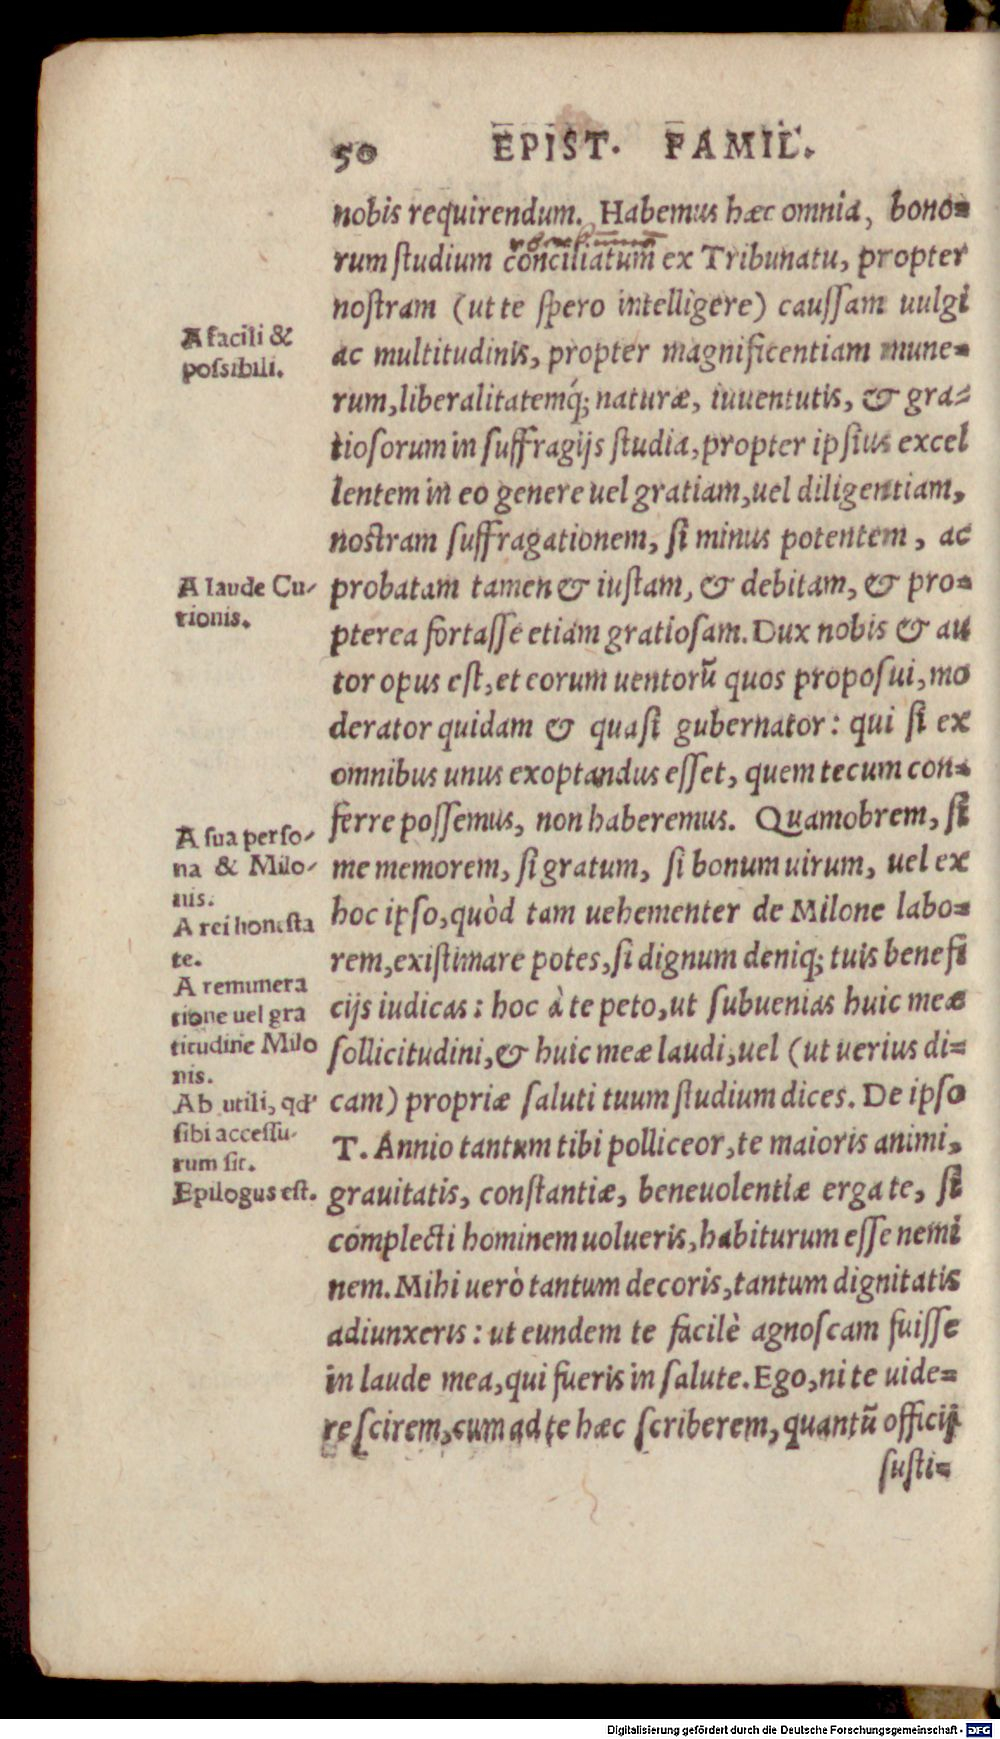 50 EPIST. FAMIL.
nobis requirendum. Habemus hæc omnia, bono-
rum studium conciliatum ex Tribunatu, propter
nostram (ut te spero intelligere) caussam uulgi
ac multitudinis, propter magnificentiam mune-
rum, liberalitatemq́; naturæ, iuuentutis, & gra-
tiosorum in suffragijs studia, propter ipsius excel
lentem in eo genere uel gratiam, uel diligentiam,
nostram suffragationem, si minus potentem, ac
probatam tamen & iustam, & debitam, & pro-
pterea fortasse etiam gratiosam. Dux nobis & au
tor opus est, et eorum uentorũ quos proposui, mo
derator quidam & quasi gubernator: qui si ex
omnibus unus exoptandus esset, quem tecum con-
ferre possemus, non haberemus. Quamobrem, si
me memorem, si gratum, si bonum uirum, uel ex
hoc ipso, quòd tam uehementer de Milone labo-
rem, existimare potes, si dignum deniq; tuis benefi
cijs iudicas: hoc à te peto, ut subuenias huic meæ
sollicitudini, & huic meæ laudi, uel (ut uerius di-
cam) propriæ saluti tuum studium dices. De ipso
T. Annio tantum tibi polliceor, te maioris animi,
grauitatis, constantiæ, beneuolentiæ erga te, si
complecti hominem uolueris, habiturum esse nemi
nem. Mihi uerò tantum decoris, tantum dignitatis
adiunxeris: ut eundem te facilè agnoscam fuisse
in laude mea, qui fueris in salute. Ego, ni te uide-
re scirem, cum ad te hæc scriberem, quantũ officij
susti-
A facili &
possibili.
A laude Cu-
rionis.
A sua perso-
na & Milo-
nis.
A rei honesta
te.
A remunera
tione uel gra
titudine Milo
nis.
Ab utili, qd'
sibi accessu-
rum sit.
Epilogus est.
Digitalisierung gefördert durch die Deutsche Forschungsgemeinschaft - DFG